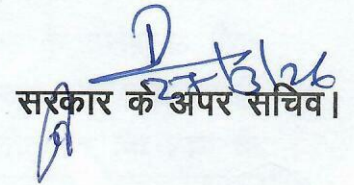 27/3/26
सरकार के अपर सचिव।